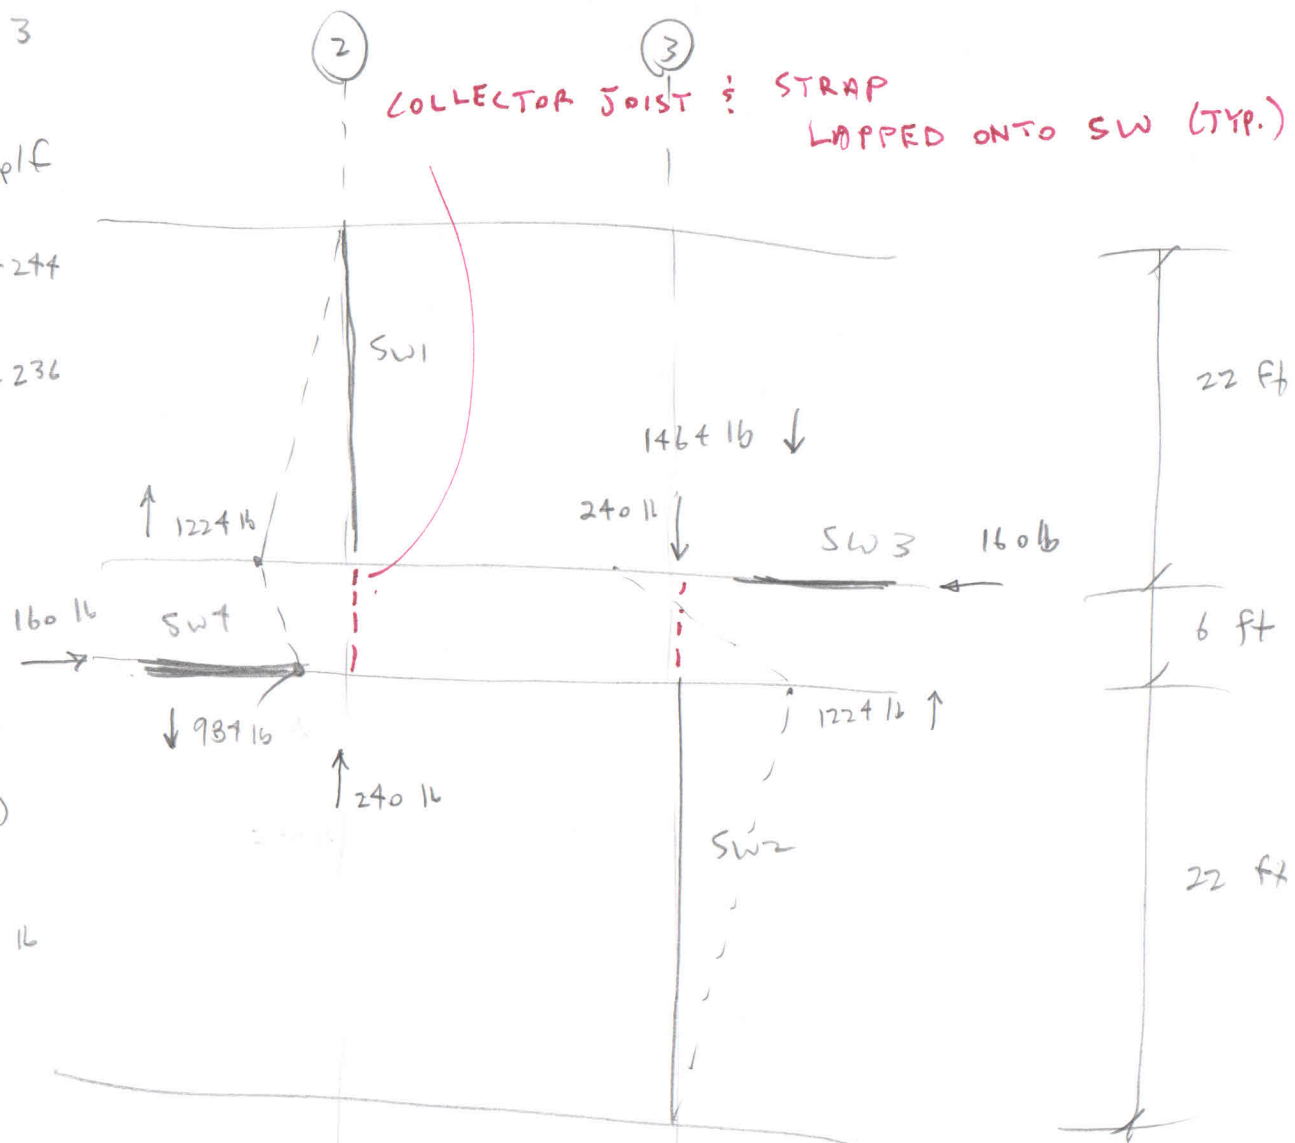 3
2
3
COLLECTOR JOIST & STRAP
LAPPED ONTO SW (TYP.)
plf
244
236
SW1
22 ft
1464 lb ↓
↑ 1224 lb
240 lb
SW3
160 lb
160 lb
SW4
6 ft
↓ 984 lb
1224 lb ↑
240 lb
)
SW2
22 ft
lb